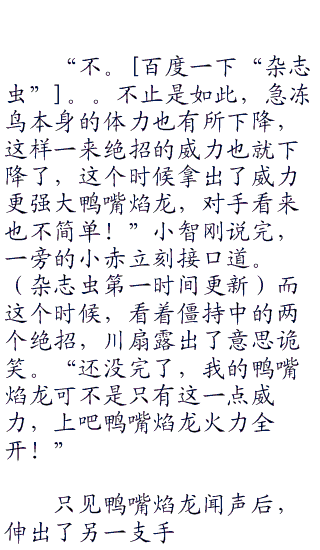 “不。[百度一下“杂志
虫”]。。不止是如此，急冻
鸟本身的体力也有所下降，
这样一来绝招的威力也就下
降了，这个时候拿出了威力
更强大鸭嘴焰龙，对手看来
也不简单！”小智刚说完，
一旁的小赤立刻接口道。
（杂志虫第一时间更新）而
这个时候，看着僵持中的两
个绝招，川扇露出了意思诡
笑。“还没完了，我的鸭嘴
焰龙可不是只有这一点威
力，上吧鸭嘴焰龙火力全
开！”
只见鸭嘴焰龙闻声后，
伸出了另一支手